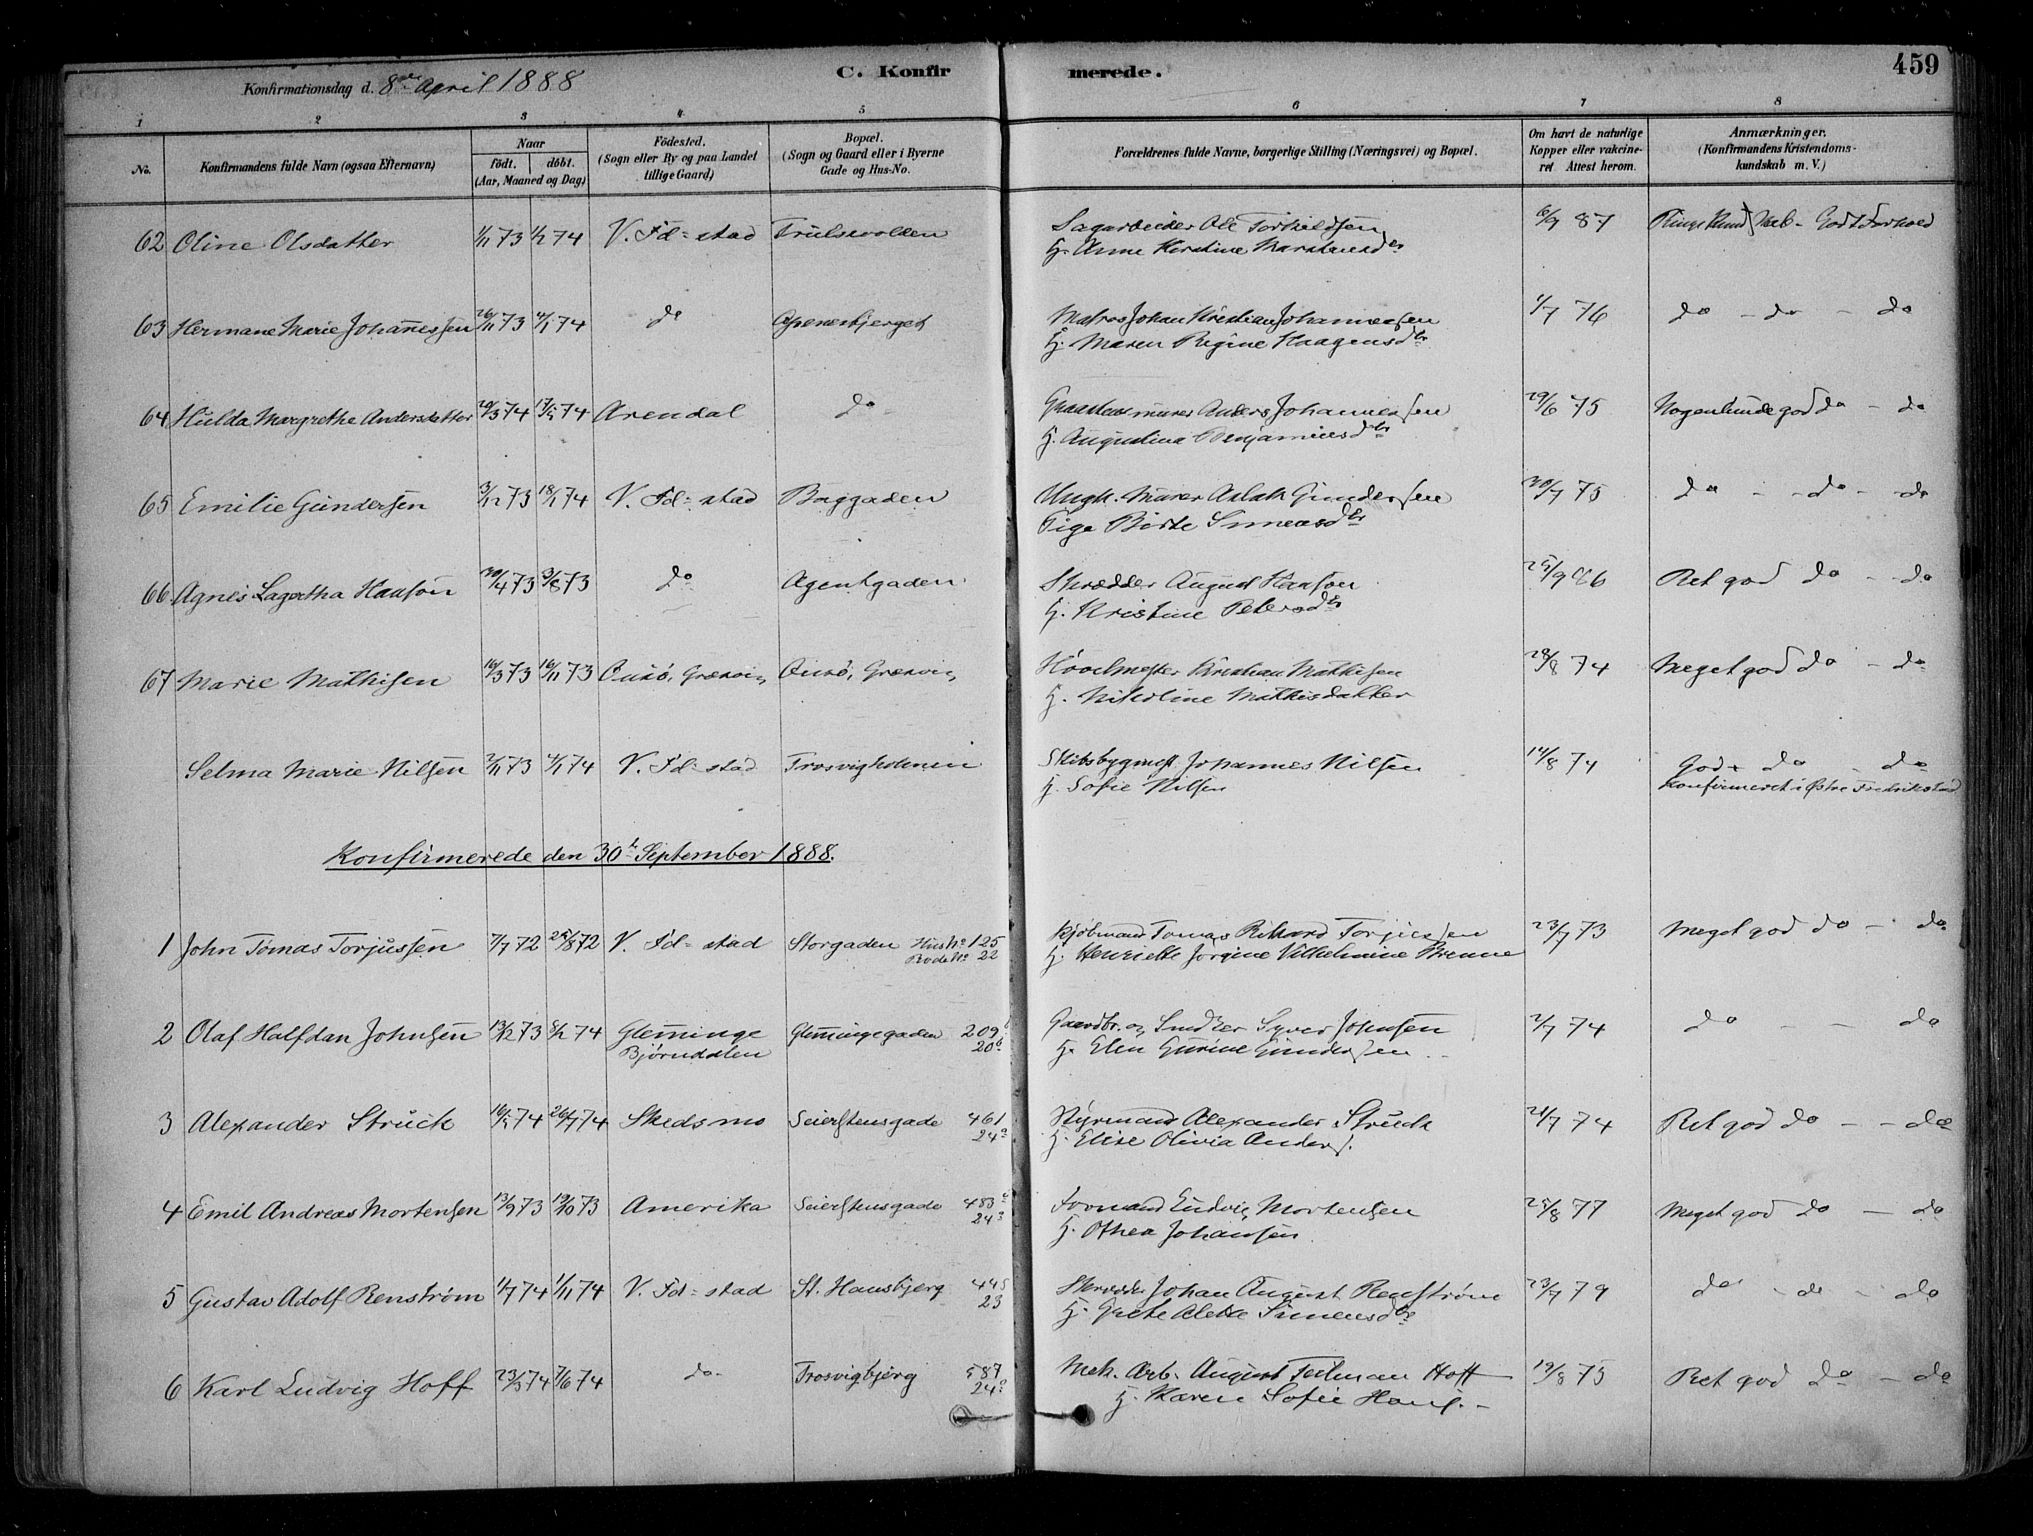 Konfirmationsdag d. 8de April 1888
C. Konfirmerede.
459
1 2 3 4 5 6 7 8
No.
Konfirmandens fulde Navn (ogsaa Efternavn)
Naar
födt. döbt.
(Aar, Maaned og Dag)
Födested.
(Sogn eller By og paa Landet
tillige Gaard)
Bopæl.
(Sogn og Gaard eller i Byerne
Gade og Hus-No.
Forældrenes fulde Navne, borgerlige Stilling (Næringsvei) og Bopæl.
Om havt de naturlige
Kopper eller vakcine-
ret Attest herom.
Anmærkninger.
(Konfirmandens Kristendoms-
kundskab m. V.)
62 Oline Olsdatter 1/11 73 1/2 74 V. Fd=stad Trulsevolden Sagarbeider Ole Torkildsen 6/9 87 Ringe Kundskab - Godt Forhold
Hj. Anne Kirstine Martensdtr
63 Hermane Marie Johannessen 26/11 73 4/1 74 do Apenesbjerget Matros Johan Kristian Johannessen 1/7 76 do - do - do
Hj. Maren Regine Haagensdtr
64 Hulda Margrethe Andersdatter 20/3 74 17/5 74 Arendal do Graastensmurer Anders Johannessen 29/6 75 Nogenlunde god do - do
Hj. Augustina Benjaminsdtr
65 Emilie Gundersen 3/12 73 18/1 74 V. Fd=stad Baggaden Ungk. Murer Aslak Gundersen 30/7 75 do - do - do
Pige Birte Simensdtr
66 Agnes Lagertha Haason 30/4 73 3/8 73 do Agentgaden Skrædder August Haason 25/9 86 Ret god do - do
Hj. Kristine Petersdtr
67 Marie Mathisen 16/3 73 16/11 73 Onsö, Græsvig Onsö, Græsvig Høvelmester Kristian Mathisen 28/8 74 Meget god do - do
Hj. Nikoline Mathisdatter
Selma Marie Nilsen 2/11 73 4/1 74 V. Fd=stad Trosvigholmen Skibsbygmest. Johannes Nilsen 14/8 74 God do - do
Hj. Sofie Nilsen Konfirmeret i Østre Fredrikstad
Konfirmerede den 30t September 1888.
1 John Tomas Torjussen 7/7 72 25/8 72 V. Fd=stad Storgaden Hus No 125 Kjøbmand Tomas Rikard Torjussen 23/7 73 Meget god do - do
Rode No 22 Hj. Henriette Jörgine Vilhelmine Brenne
2 Olaf Halfdan Johnsen 13/12 73 8/2 74 Glemminge Glemmingegaden 209 Gaardbr. og Syver Johnsen 2/7 74 do - - do
Björndalen 20 Hj. Elen Gurine Gundersen
3 Alexander Struck 16/5 74 26/7 74 Skedsmo Seierstensgade 461 Styrmand Alexander Struck 21/7 74 Ret god do - - do
24 Hj. Elise Olivia Anders.
4 Emil Andreas Mortensen 13/9 73 19/10 73 Amerika Seierstensgade 483 Formand Ludvig Mortensen 25/8 77 Meget god do - do
24 Hj. Othea Johansen
5 Gustav Adolf Renstrøm 1/7 74 1/11 74 V. Fd=stad St. Hansbjerg 445 Skrædder Johan August Renstrøm 23/7 79 do - do - do
23 Hj. Grete Alette Simensdtr
6 Karl Ludvig Hoff 23/3 74 7/6 74 do Trosvigbjerg 587 Mek. Arb. August Teilman Hoff 19/8 75 Ret god do - do
24 Hj. Karen Sofie Hans.